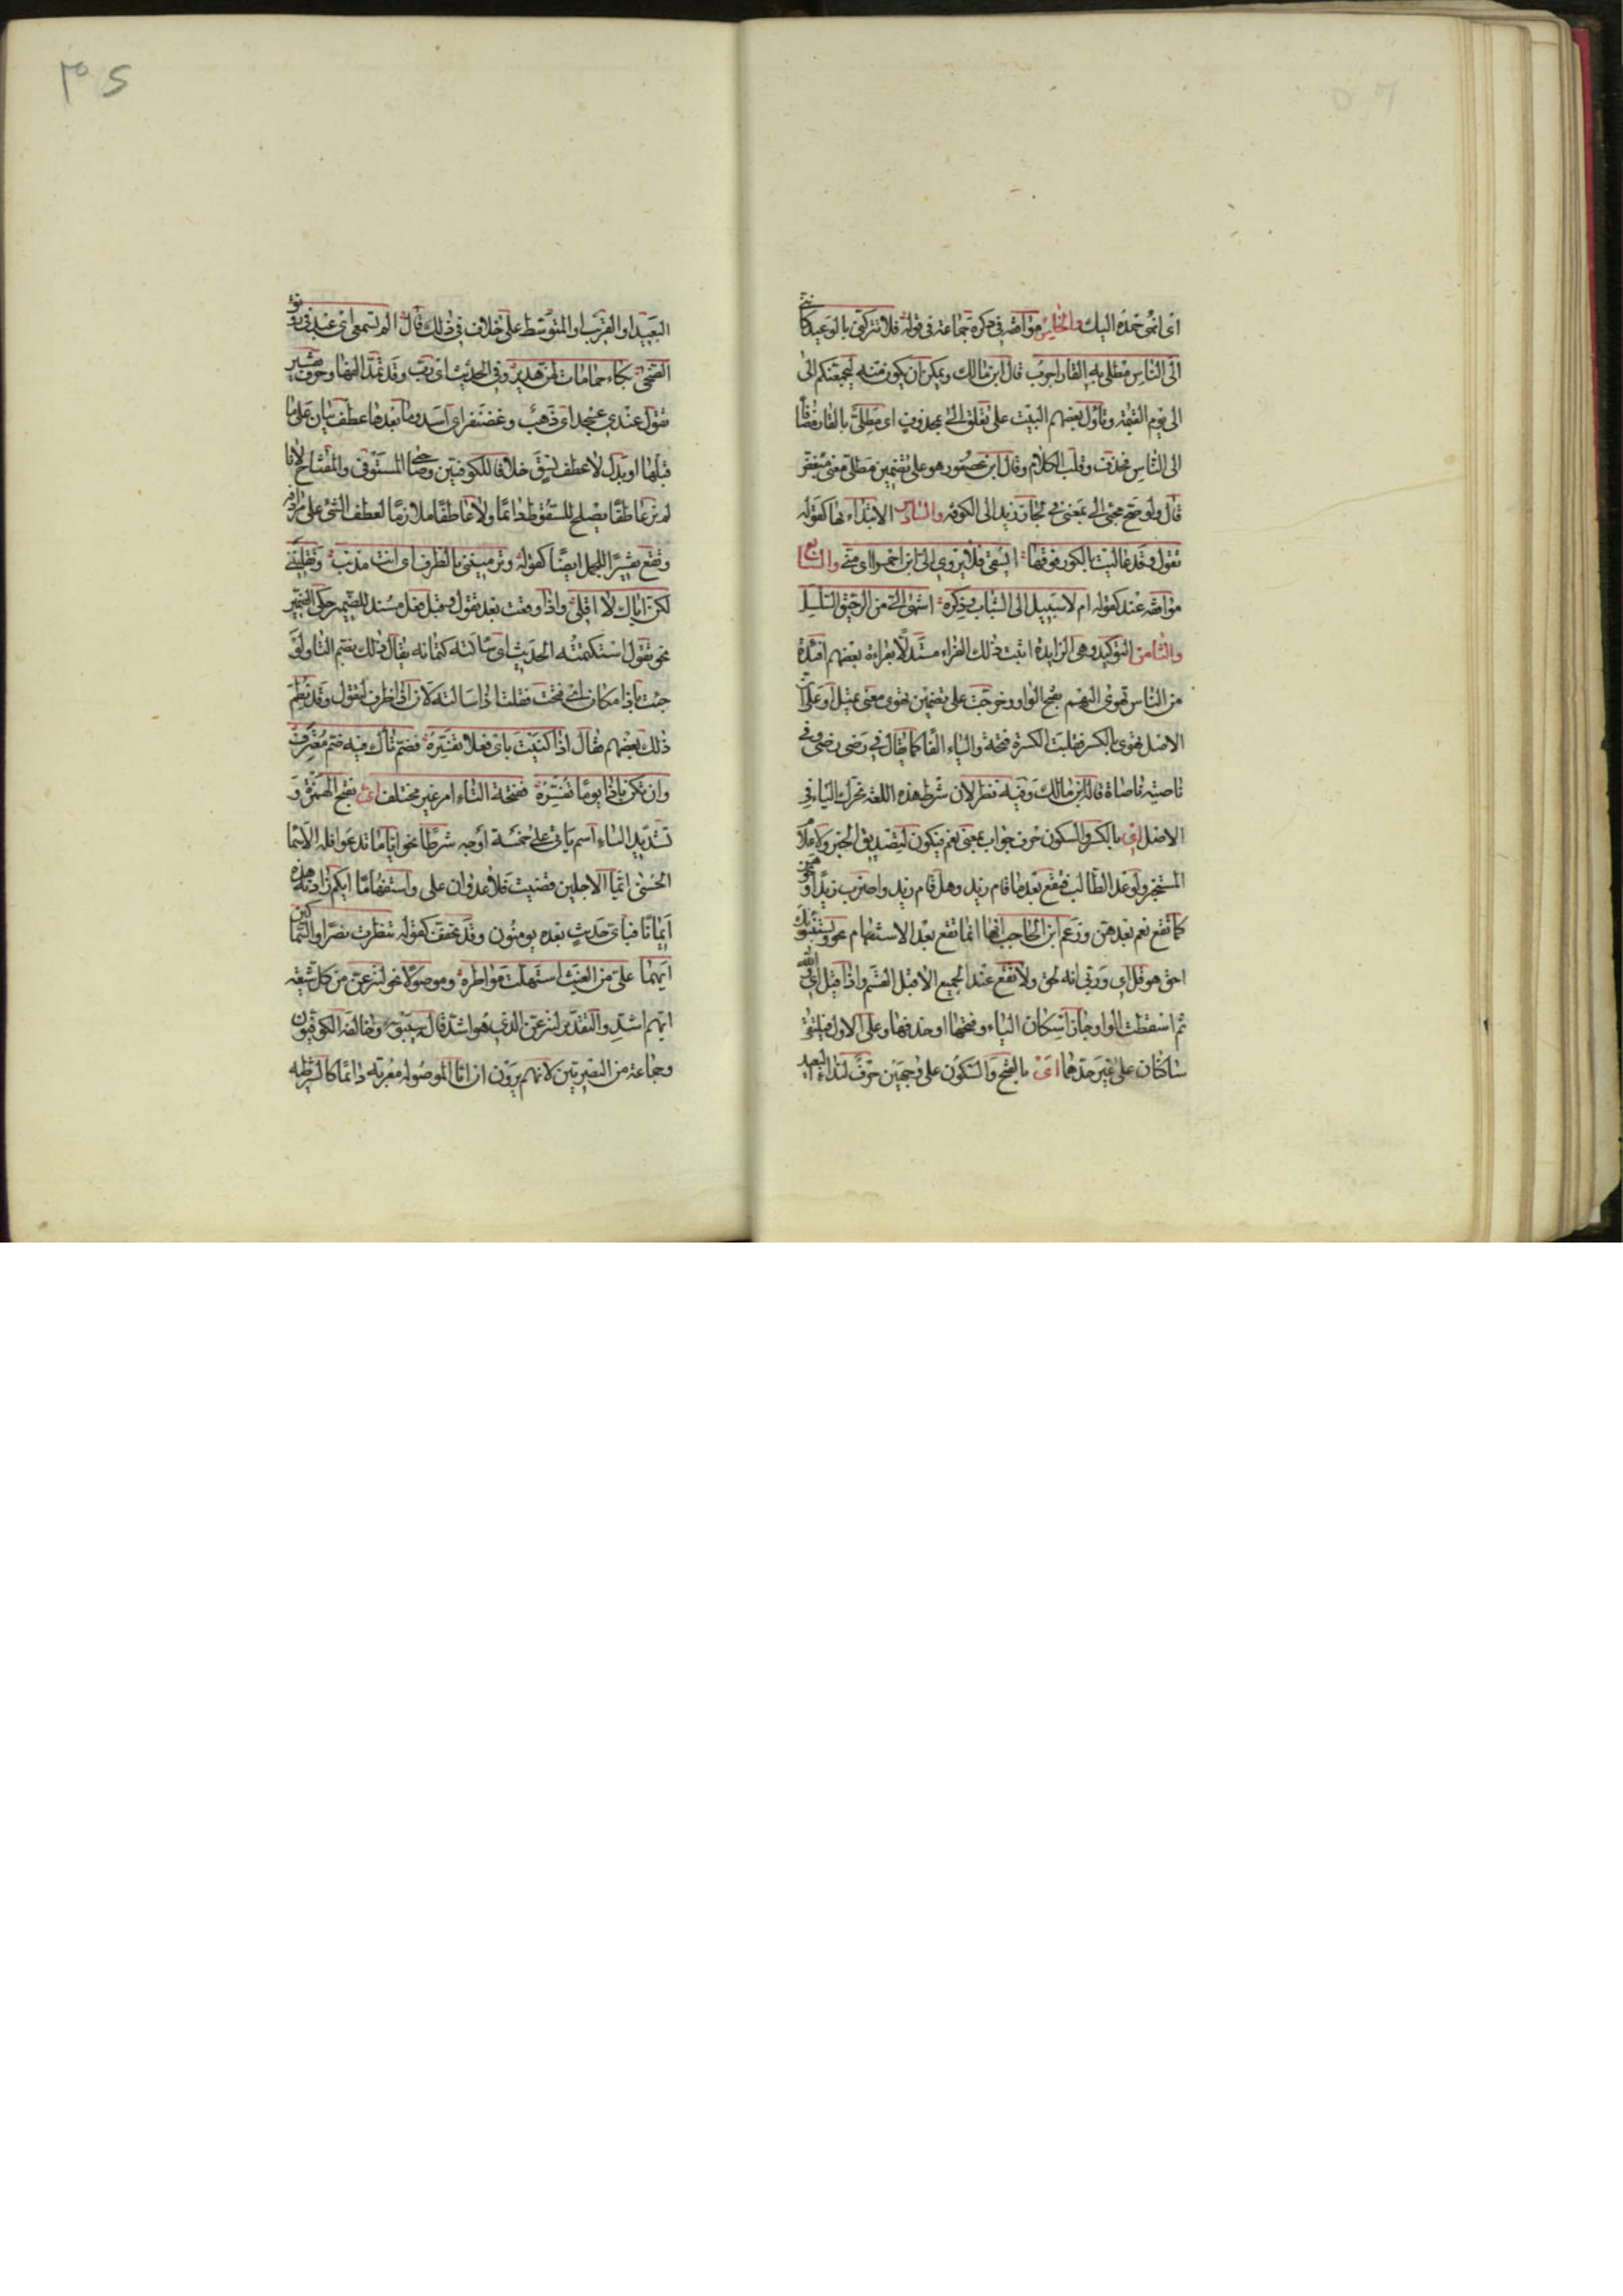 اى انهى حمده اليك والخامس موافقة فى ذكره جماعة فى قوله فلا تتركنى بالوعيد كاننى
الى الناس مطلى به القار اجرب قال ابن مالك ويمكن ان يكون منه ليجمعنكم الى
الى يوم القيمة وتاول بعضهم البيت على تعلق الى بمحذوف اى مطلى بالقار مضافا
الى الناس فحذف وقلب الكلام وقال ابن عصفور هو على تضمين مطلى معنى مبغض
قال ولو صح مجئ الى بمعنى فى لجاز زيد الى الكوفة والسادس الابتداء بها كقوله
تقول وقد عاليت بالكور فوقها ايسقى فلا يروى الى ابن احمرا اى منى والسابع
موافقة عند كقوله ام لا سبيل الى الشباب وذكره اشهى الى من الرحيق السلسل
والثامن التوكيد وهى الزايدة اثبت ذلك الفراء مستدلا بقراءة بعضهم افئدة
من الناس تهوى اليهم بفتح الواو وخرجت على تضمين تهوى معنى تميل او على ان
الاصل تهوى بالكسر فقلبت الكسرة فتحة والياء الفا كما يقال فى رضى رضى وفى
ناصية ناصاة قاله ابن مالك وفيه نظر لان شرط هذه اللغة تحرك الياء فى
الاصل اى بالكسر والسكون حرف جواب بمعنى نعم فيكون لتصديق الخبر ولاعلام
المستخبر ولوعد الطالب فتقع بعد ما قام زيد وهل قام زيد واضرب زيدا ونحوهن
كما تقع نعم بعدهن وزعم ابن الحاجب انها انما تقع بعد الاستفهام نحو ويستنبؤنك
احق هو قل اى وربى انه لحق ولا تقع عند الجميع الا قبل القسم واذا قيل اى والله
ثم اسقطت الواو جاز اسكان الياء وفتحها وحذفها وعلى الاول فيلتقى
ساكنان على غير حدهما اى بالفتح والسكون على وجهين حرف لنداء البعيد
البعيد او القريب او المتوسط على خلاف فى ذلك قال الم تسمعى اى عبد فى رونق
الضحى بكاء حمامات لهن هدير وفى الحديث اى رب وقد تمد الفها وحرف تفسير
تقول عندى عسجد اى ذهب وغضنفر اى اسد وما بعدها عطف بيان على ما
قبلها او بدل لا عطف نسق خلافا للكوفيين وصاحبى المستوفى والمفتاح لانا
لم نر عاطفا يصلح للسقوط دائما ولا عاطفا ملازما لعطف الشئ على مرادفه
وتقع تفسيرا للجمل ايضا كقوله وترميننى بالطرف اى انت مذنب وتقليننى
لكن اياك لا اقلى واذا وقعت بعد تقول وقبل فعل مسند للضمير حكى الضمير
نحو تقول استكتمته الحديث اى سالته كتمانه يقال ذلك بضم التاء ولو
جئت باذا مكان اى فتحت فقلت اذا سالته لان اذا ظرف لتقول وقد نظم
ذلك بعضهم فقال اذا كنيت باى فعلا تفسره فضم تاءك فيه ضم معترف
وان تكن باذا يوما تفسره ففتحة التاء امر غير مختلف اى بفتح الهمزة و
تشديد الياء اسم ياتى على خمسة اوجه شرطا نحو اياما تدعوا فله الاسما
الحسنى ايما الاجلين قضيت فلا عدوان على واستفهاما ايكم زادته هذه
ايمانا فباى حديث بعده يومنون وقد تخفف كقوله تنظرت نصرا والسماكين
ايهما على من الغيث استهلت مواطره وموصولا نحو لننزعن من كل شيعة
ايهم اشد والتقدير لننزعن الذى هو اشد قاله سيبويه وخالفه الكوفيون
وجماعة من البصريين لانهم يرون ان ايا الموصولة معربة دائما كالشرطية